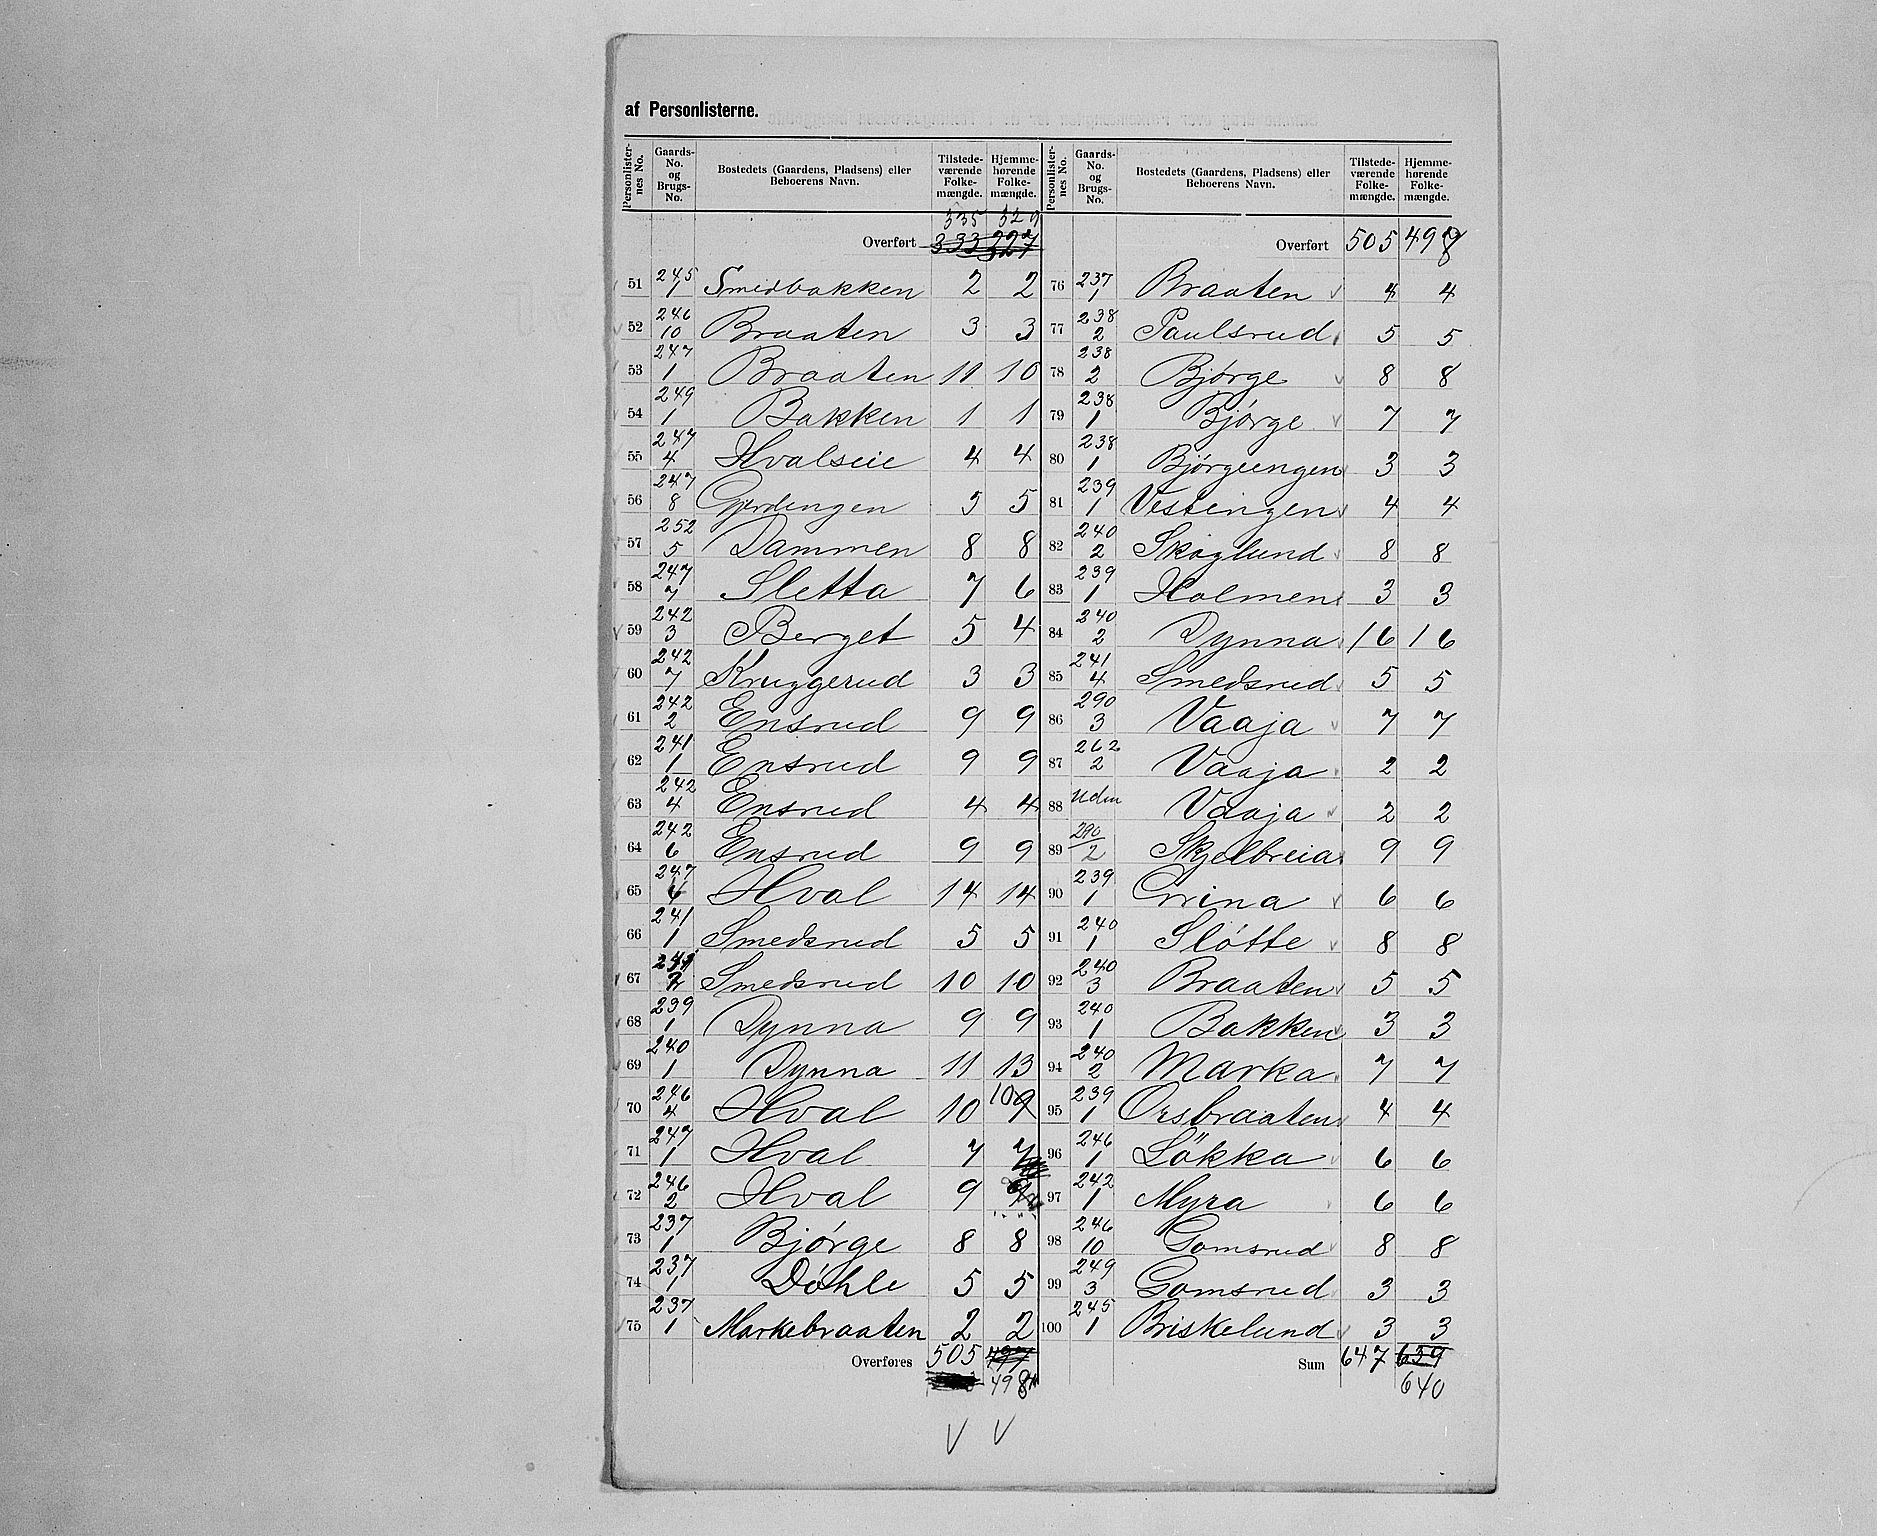 af Personlisterne.
Personlister-nes No. | Gaards-No. og Brugs-No. | Bostedets (Gaardens, Pladsens) eller Beboerens Navn. | Tilstede-værende Folke-mængde. | Hjemme-hørende Folke-mængde.
335 329
Overført 333 327
51 245/1 Smedbakken 2 2
52 246/10 Braaten 3 3
53 247/1 Braaten 11 10
54 249/1 Bakken 1 1
55 247/4 Hvalseie 4 4
56 247/8 Gjerdengen 5 5
57 252/5 Dammen 8 8
58 247/7 Sletta 7 6
59 242/3 Berget 5 4
60 242/7 Kruggerud 3 3
61 242/2 Ensrud 9 9
62 241/1 Ensrud 9 9
63 242/4 Ensrud 4 4
64 242/6 Ensrud 9 9
65 247/6 Hval 14 14
66 241/1 Smedsrud 5 5
67 241/2 Smedsrud 10 10
68 239/1 Dynna 9 9
69 240/1 Dynna 11 13
70 246/4 Hval 10 10 9
71 247/1 Hval 7 7
72 246/2 Hval 9 9
73 237/1 Bjørge 8 8
74 237/1 Døhle 5 5
75 237/1 Markebraaten 2 2
Overføres 505 497
498
Personlister-nes No. | Gaards-No. og Brugs-No. | Bostedets (Gaardens, Pladsens) eller Beboerens Navn. | Tilstede-værende Folke-mængde. | Hjemme-hørende Folke-mængde.
Overført 505 498
76 237/1 Braaten 4 4
77 238/2 Paulsrud 5 5
78 238/2 Bjørge 8 8
79 238/1 Bjørge 7 7
80 238/1 Bjørgeengen 3 3
81 239/1 Vestengen 4 4
82 240/2 Skoglund 8 8
83 239/1 Holmen 3 3
84 240/2 Dynna 16 16
85 241/4 Smedsrud 5 5
86 290/3 Vaaja 7 7
87 262/2 Vaaja 2 2
88 Uden Vaaja 2 2
89 290/2 Skjelbreia 9 9
90 239/1 Grina 6 6
91 240/1 Sløtte 8 8
92 240/3 Braaten 5 5
93 240/1 Bakken 3 3
94 240/2 Marka 7 7
95 239/1 Orsbraaten 4 4
96 246/1 Løkka 6 6
97 242/1 Myra 6 6
98 246/10 Gomsrud 8 8
99 249/3 Gomsrud 3 3
100 245/1 Briskelund 3 3
Sum 647 639
640